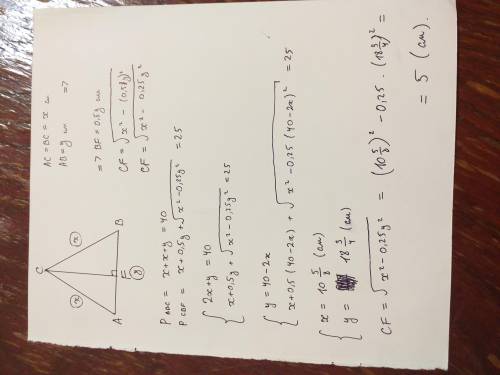 C
x
x
A
F
B
y
AC = BC = x см
AB = y см =>
=> BF = 0,5y см
CF = √x² - (0,5y)²
CF = √x² - 0,25y²
P ABC = x + x + y = 40
P CBF = x + 0,5y + √x² - 0,25y² = 25
{ 2x + y = 40
x + 0,5y + √x² - 0,25y² = 25
{ y = 40 - 2x
x + 0,5 (40 - 2x) + √x² - 0,25 (40 - 2x)² = 25
{ x = 10 5/8 (см)
y = 18 3/4 (см)
CF = √x² - 0,25y² = (10 5/8)² - 0,25 · (18 3/4)² =
= 5 (см).